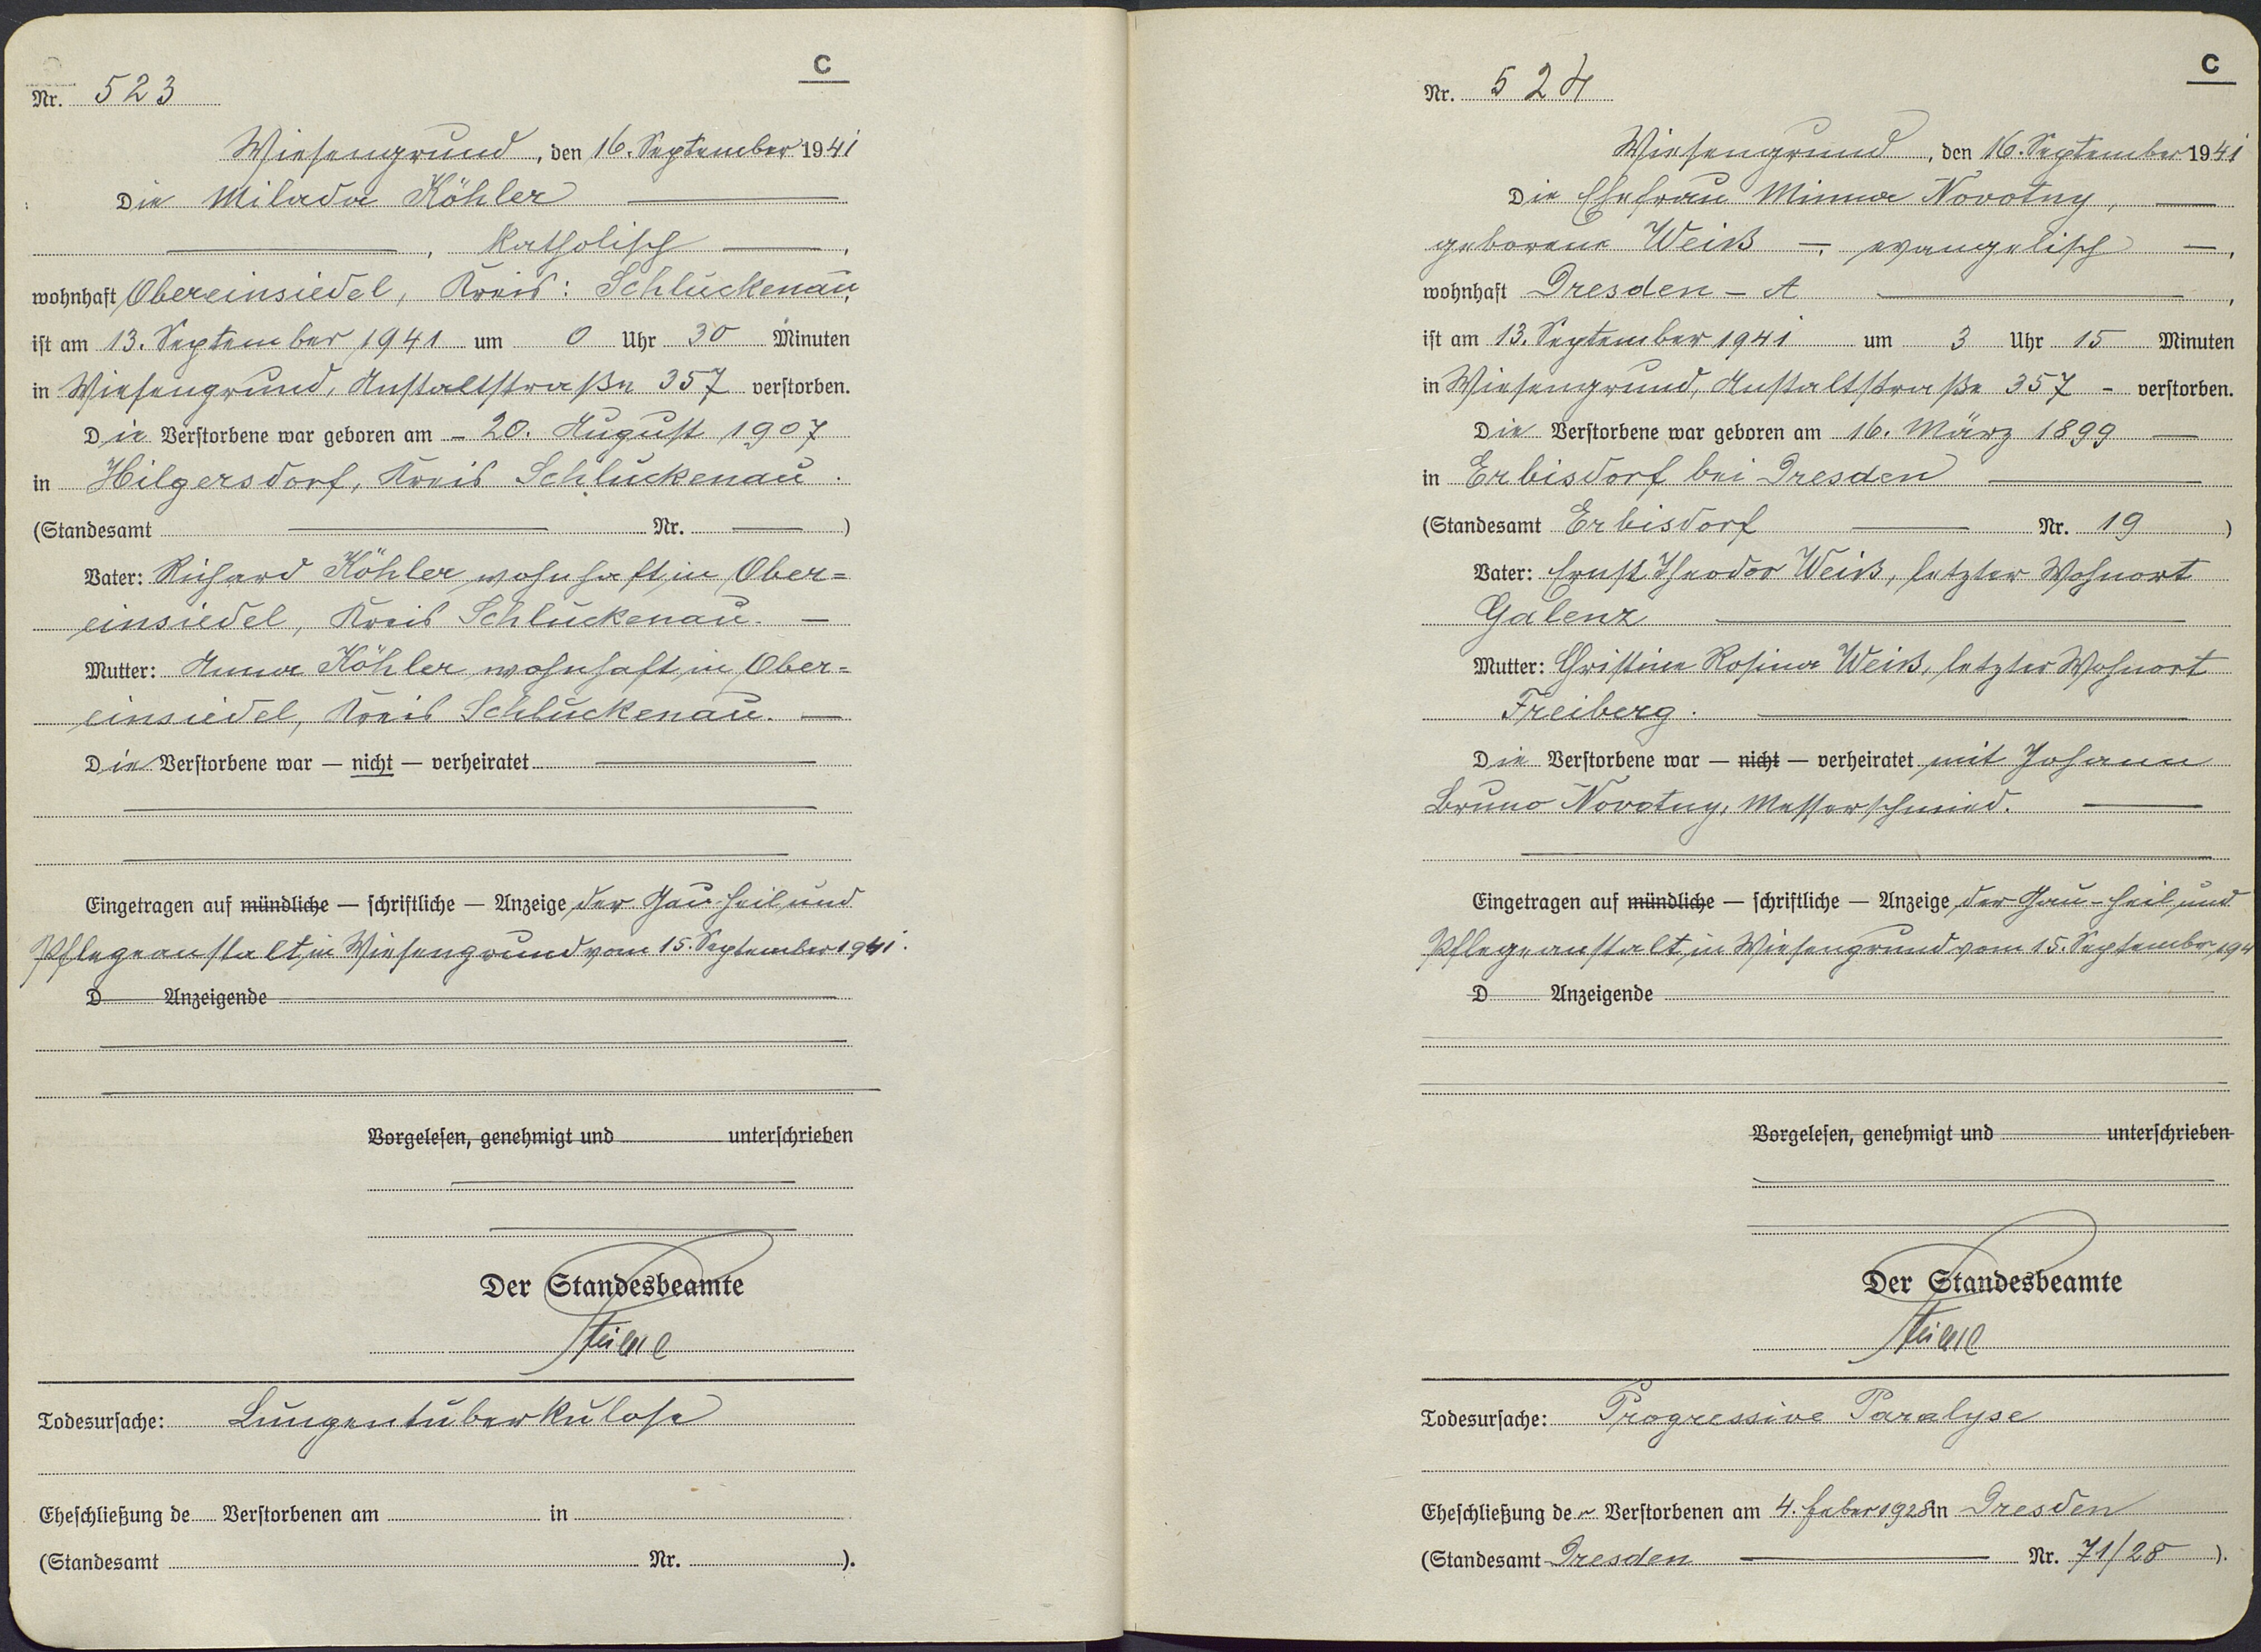 C
Nr. 523
Wiesengrund, den 16. September 1941
Die Milada Köhler
, katholisch ,
wohnhaft Obereinsiedel, Kreis: Schluckenau,
ist am 13. September 1941 um 0 Uhr 30 Minuten
in Wiesengrund, Anstaltstraße 357 verstorben.
Die Verstorbene war geboren am - 20. August 1907
in Hilgersdorf, Kreis Schluckenau.
(Standesamt Nr. )
Vater: Richard Köhler, wohnhaft in Ober=
einsiedel, Kreis Schluckenau. —
Mutter: Anna Köhler, wohnhaft in Ober=
einsiedel, Kreis Schluckenau. —
Die Verstorbene war — nicht — verheiratet
Eingetragen auf mündliche — schriftliche — Anzeige der Gau-Heil und
Pflegeanstalt in Wiesengrund vom 15. September 1941.
D Anzeigende
Vorgelesen, genehmigt und unterschrieben
Der Standesbeamte
Todesursache: Lungentuberkulose
Eheschließung de Verstorbenen am in
(Standesamt Nr. ).
C
Nr. 524
Wiesengrund, den 16. September 1941
Die Ehefrau Minna Novotny, —
geborene Weiß —, evangelisch —,
wohnhaft Dresden - A ,
ist am 13. September 1941 um 3 Uhr 15 Minuten
in Wiesengrund, Anstaltstraße 357 - verstorben.
Die Verstorbene war geboren am 16. März 1899 —
in Erbisdorf bei Dresden
(Standesamt Erbisdorf Nr. 19 )
Vater: Ernst Theodor Weiß, letzter Wohnort
Galenz
Mutter: Christine Rosina Weiß, letzter Wohnort
Freiberg.
Die Verstorbene war — nicht — verheiratet mit Johann
Bruno Novotny, Messerschmied.
Eingetragen auf mündliche — schriftliche — Anzeige der Gau-Heil und
Pflegeanstalt in Wiesengrund vom 15. September 194
D Anzeigende
Vorgelesen, genehmigt und unterschrieben
Der Standesbeamte
Todesursache: Progressive Paralyse
Eheschließung der Verstorbenen am 4. Feber 1928 in Dresden
(Standesamt Dresden Nr. 71/28 ).